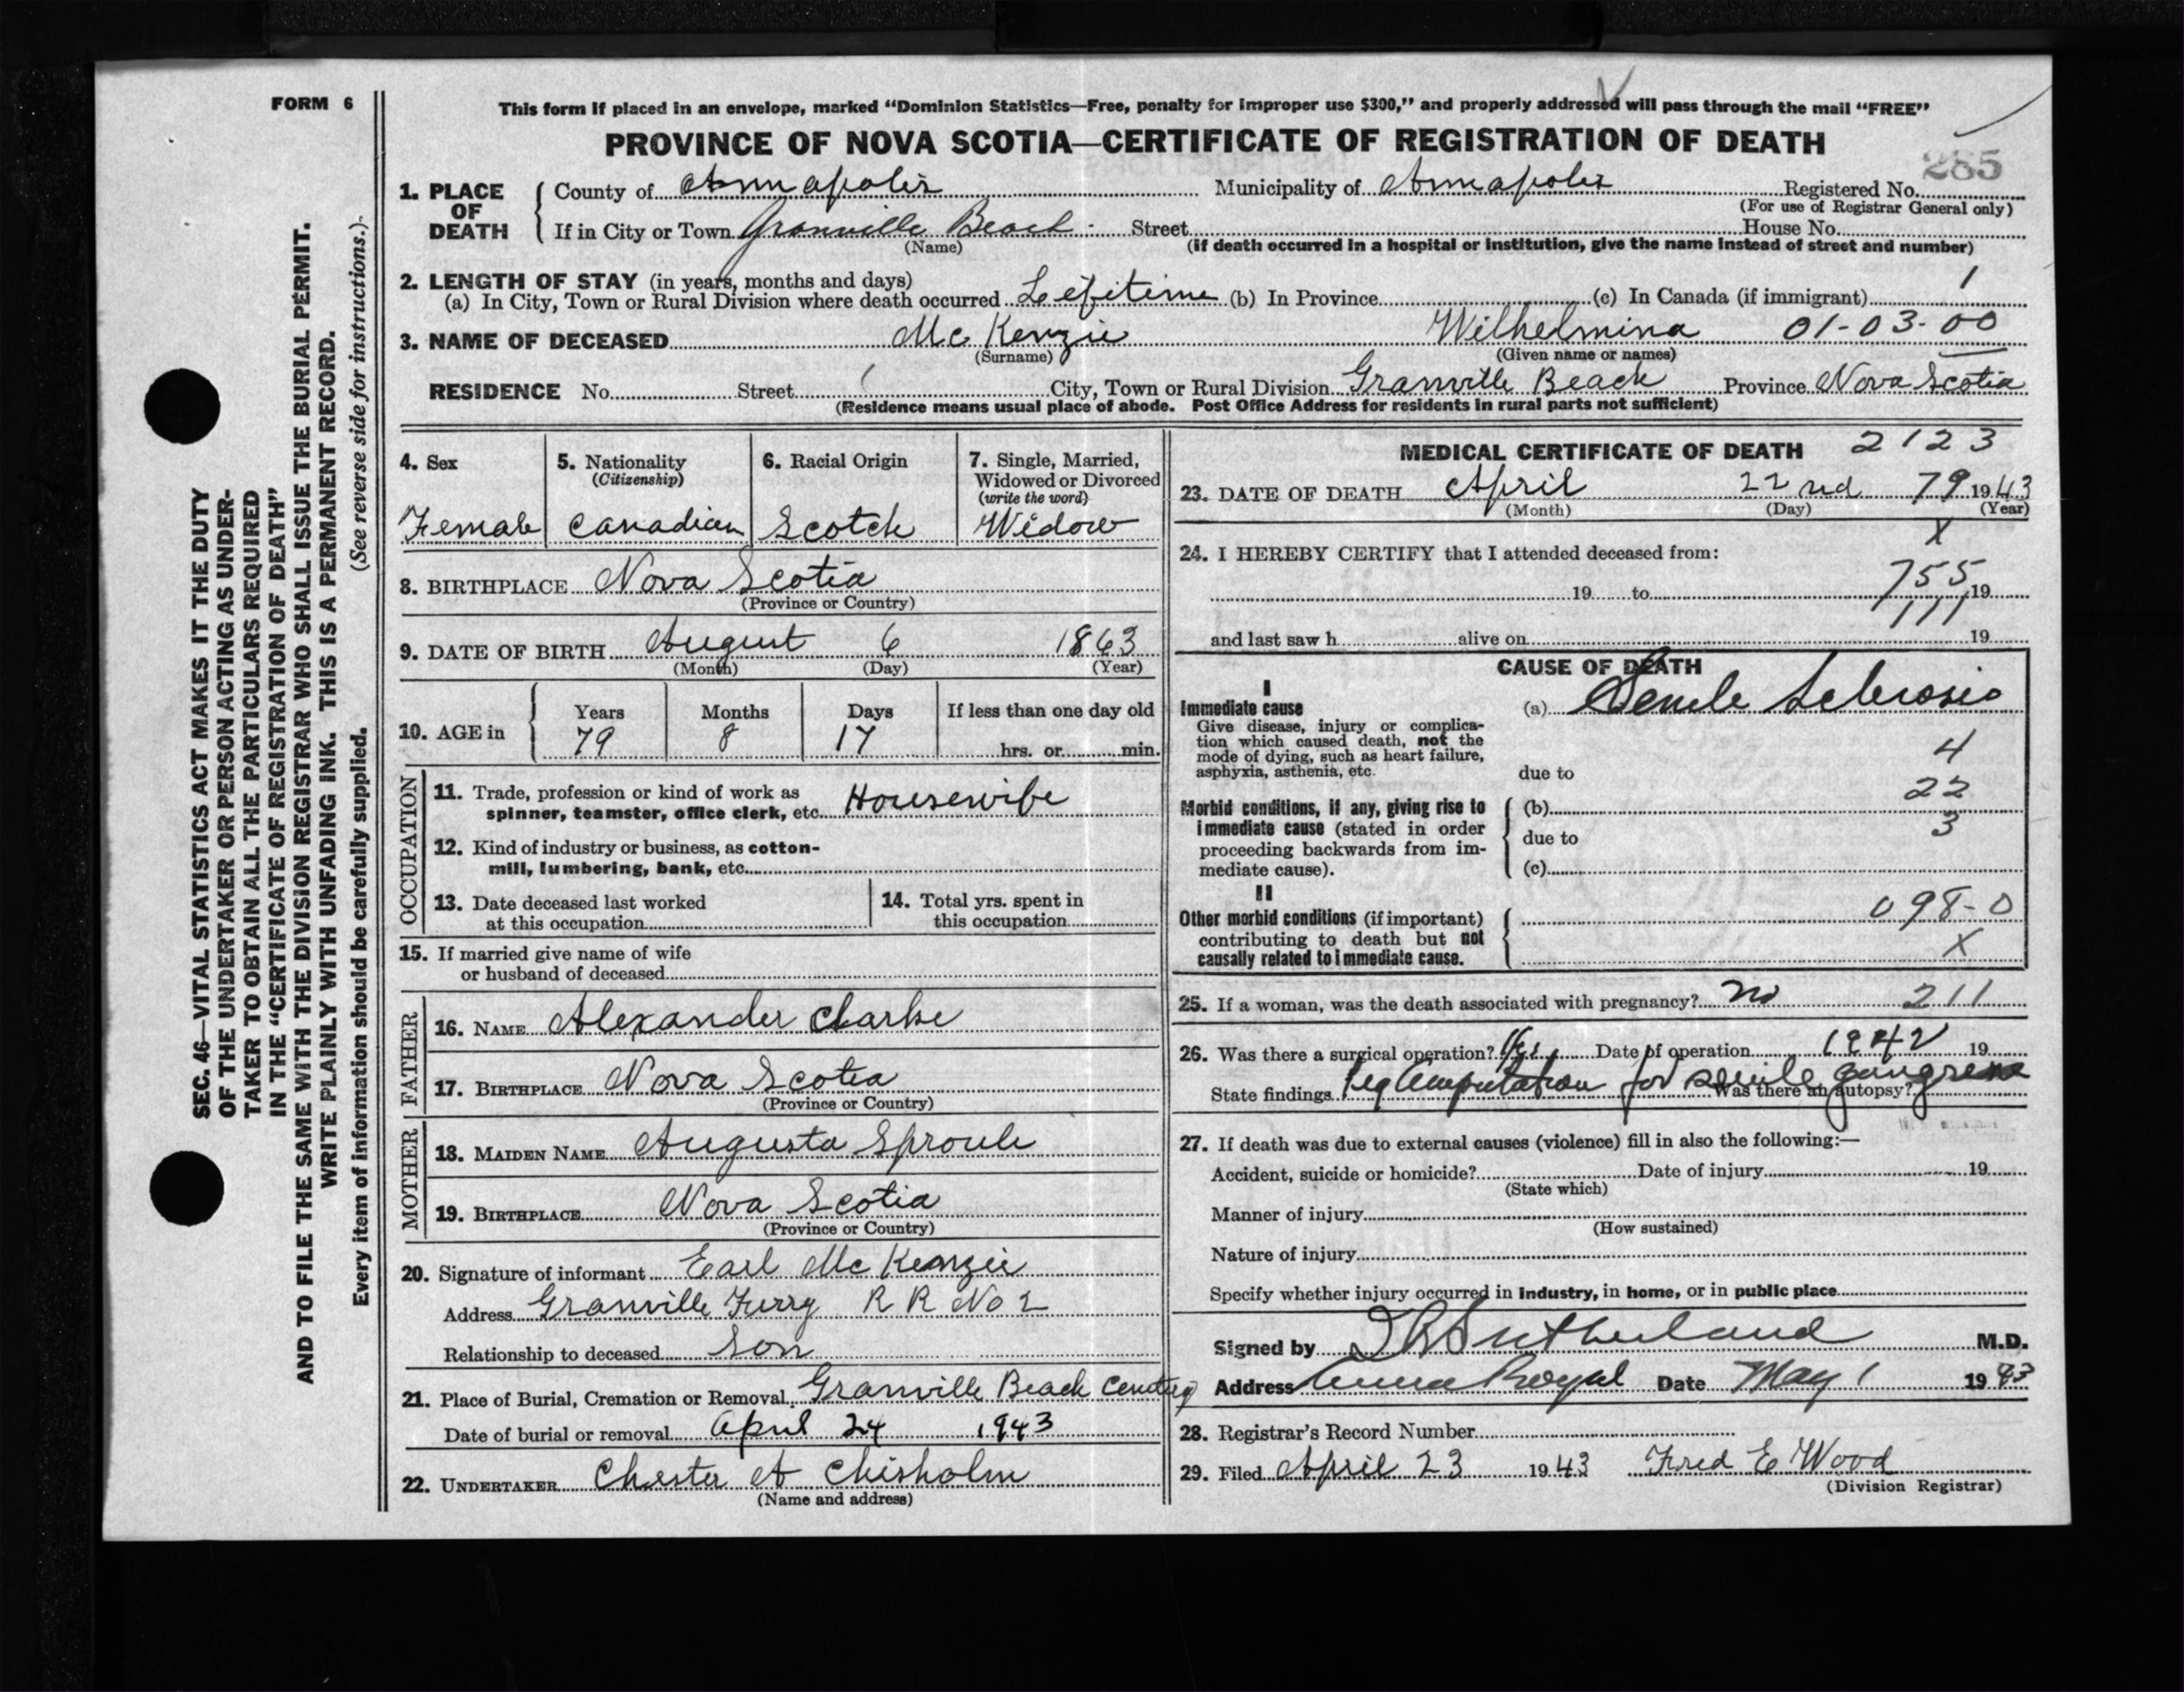 FORM 6
This form if placed in an envelope, marked “Dominion Statistics—Free, penalty for improper use $300,” and properly addressed will pass through the mail “FREE”
PROVINCE OF NOVA SCOTIA—CERTIFICATE OF REGISTRATION OF DEATH
285
1. PLACE OF DEATH County of Annapolis Municipality of Annapolis Registered No.
(For use of Registrar General only)
If in City or Town Granville Beach Street House No.
(Name) (If death occurred in a hospital or institution, give the name instead of street and number)
2. LENGTH OF STAY (in years, months and days)
(a) In City, Town or Rural Division where death occurred Lefitime (b) In Province (c) In Canada (if immigrant) 1
3. NAME OF DECEASED Mc Kenzie Wilhelmina 01-03-00
(Surname) (Given name or names)
RESIDENCE No. Street City, Town or Rural Division Granville Beach Province Nova Scotia
(Residence means usual place of abode. Post Office Address for residents in rural parts not sufficient)
SEC. 46—VITAL STATISTICS ACT MAKES IT THE DUTY
OF THE UNDERTAKER OR PERSON ACTING AS UNDER-
TAKER TO OBTAIN ALL THE PARTICULARS REQUIRED
IN THE “CERTIFICATE OF REGISTRATION OF DEATH”
AND TO FILE THE SAME WITH THE DIVISION REGISTRAR WHO SHALL ISSUE THE BURIAL PERMIT.
WRITE PLAINLY WITH UNFADING INK. THIS IS A PERMANENT RECORD.
Every item of information should be carefully supplied. (See reverse side for instructions.)
4. Sex
Female
5. Nationality
(Citizenship)
Canadian
6. Racial Origin
Scotch
7. Single, Married,
Widowed or Divorced
(write the word)
Widow
8. BIRTHPLACE Nova Scotia
(Province or Country)
9. DATE OF BIRTH August 6 1863
(Month) (Day) (Year)
10. AGE in Years Months Days If less than one day old
79 8 17 hrs. or min.
OCCUPATION
11. Trade, profession or kind of work as
spinner, teamster, office clerk, etc. Housewife
12. Kind of industry or business, as cotton-
mill, lumbering, bank, etc.
13. Date deceased last worked
at this occupation
14. Total yrs. spent in
this occupation
15. If married give name of wife
or husband of deceased
FATHER
16. NAME Alexander Clarke
17. BIRTHPLACE Nova Scotia
(Province or Country)
MOTHER
18. MAIDEN NAME Augusta Sproule
19. BIRTHPLACE Nova Scotia
(Province or Country)
20. Signature of informant Earl Mc Kenzie
Address Granville Ferry R R No 2
Relationship to deceased Son
21. Place of Burial, Cremation or Removal Granville Beach Cemetery
Date of burial or removal April 24 1943
22. UNDERTAKER Chester A Chisholm
(Name and address)
MEDICAL CERTIFICATE OF DEATH 2123
23. DATE OF DEATH April 22nd 79 1943
(Month) (Day) (Year)
X
24. I HEREBY CERTIFY that I attended deceased from:
19 to 755 19
111
and last saw h alive on 19
CAUSE OF DEATH
I
Immediate cause
Give disease, injury or complica-
tion which caused death, not the
mode of dying, such as heart failure,
asphyxia, asthenia, etc.
(a) Senile Sclerosis
4
due to
22
Morbid conditions, if any, giving rise to
immediate cause (stated in order
proceeding backwards from im-
mediate cause).
(b)
3
due to
(c)
II
Other morbid conditions (if important)
contributing to death but not
causally related to immediate cause.
098-0
X
25. If a woman, was the death associated with pregnancy? no 211
26. Was there a surgical operation? Yes Date of operation 1942 19
State findings leg Amputation for senile gangrene Was there an autopsy?
27. If death was due to external causes (violence) fill in also the following:—
Accident, suicide or homicide? Date of injury 19
(State which)
Manner of injury
(How sustained)
Nature of injury
Specify whether injury occurred in industry, in home, or in public place
Signed by Sutherland M.D.
Address Anna Royal Date May 1 1943
28. Registrar's Record Number
29. Filed April 23 1943 Fred E Wood
(Division Registrar)